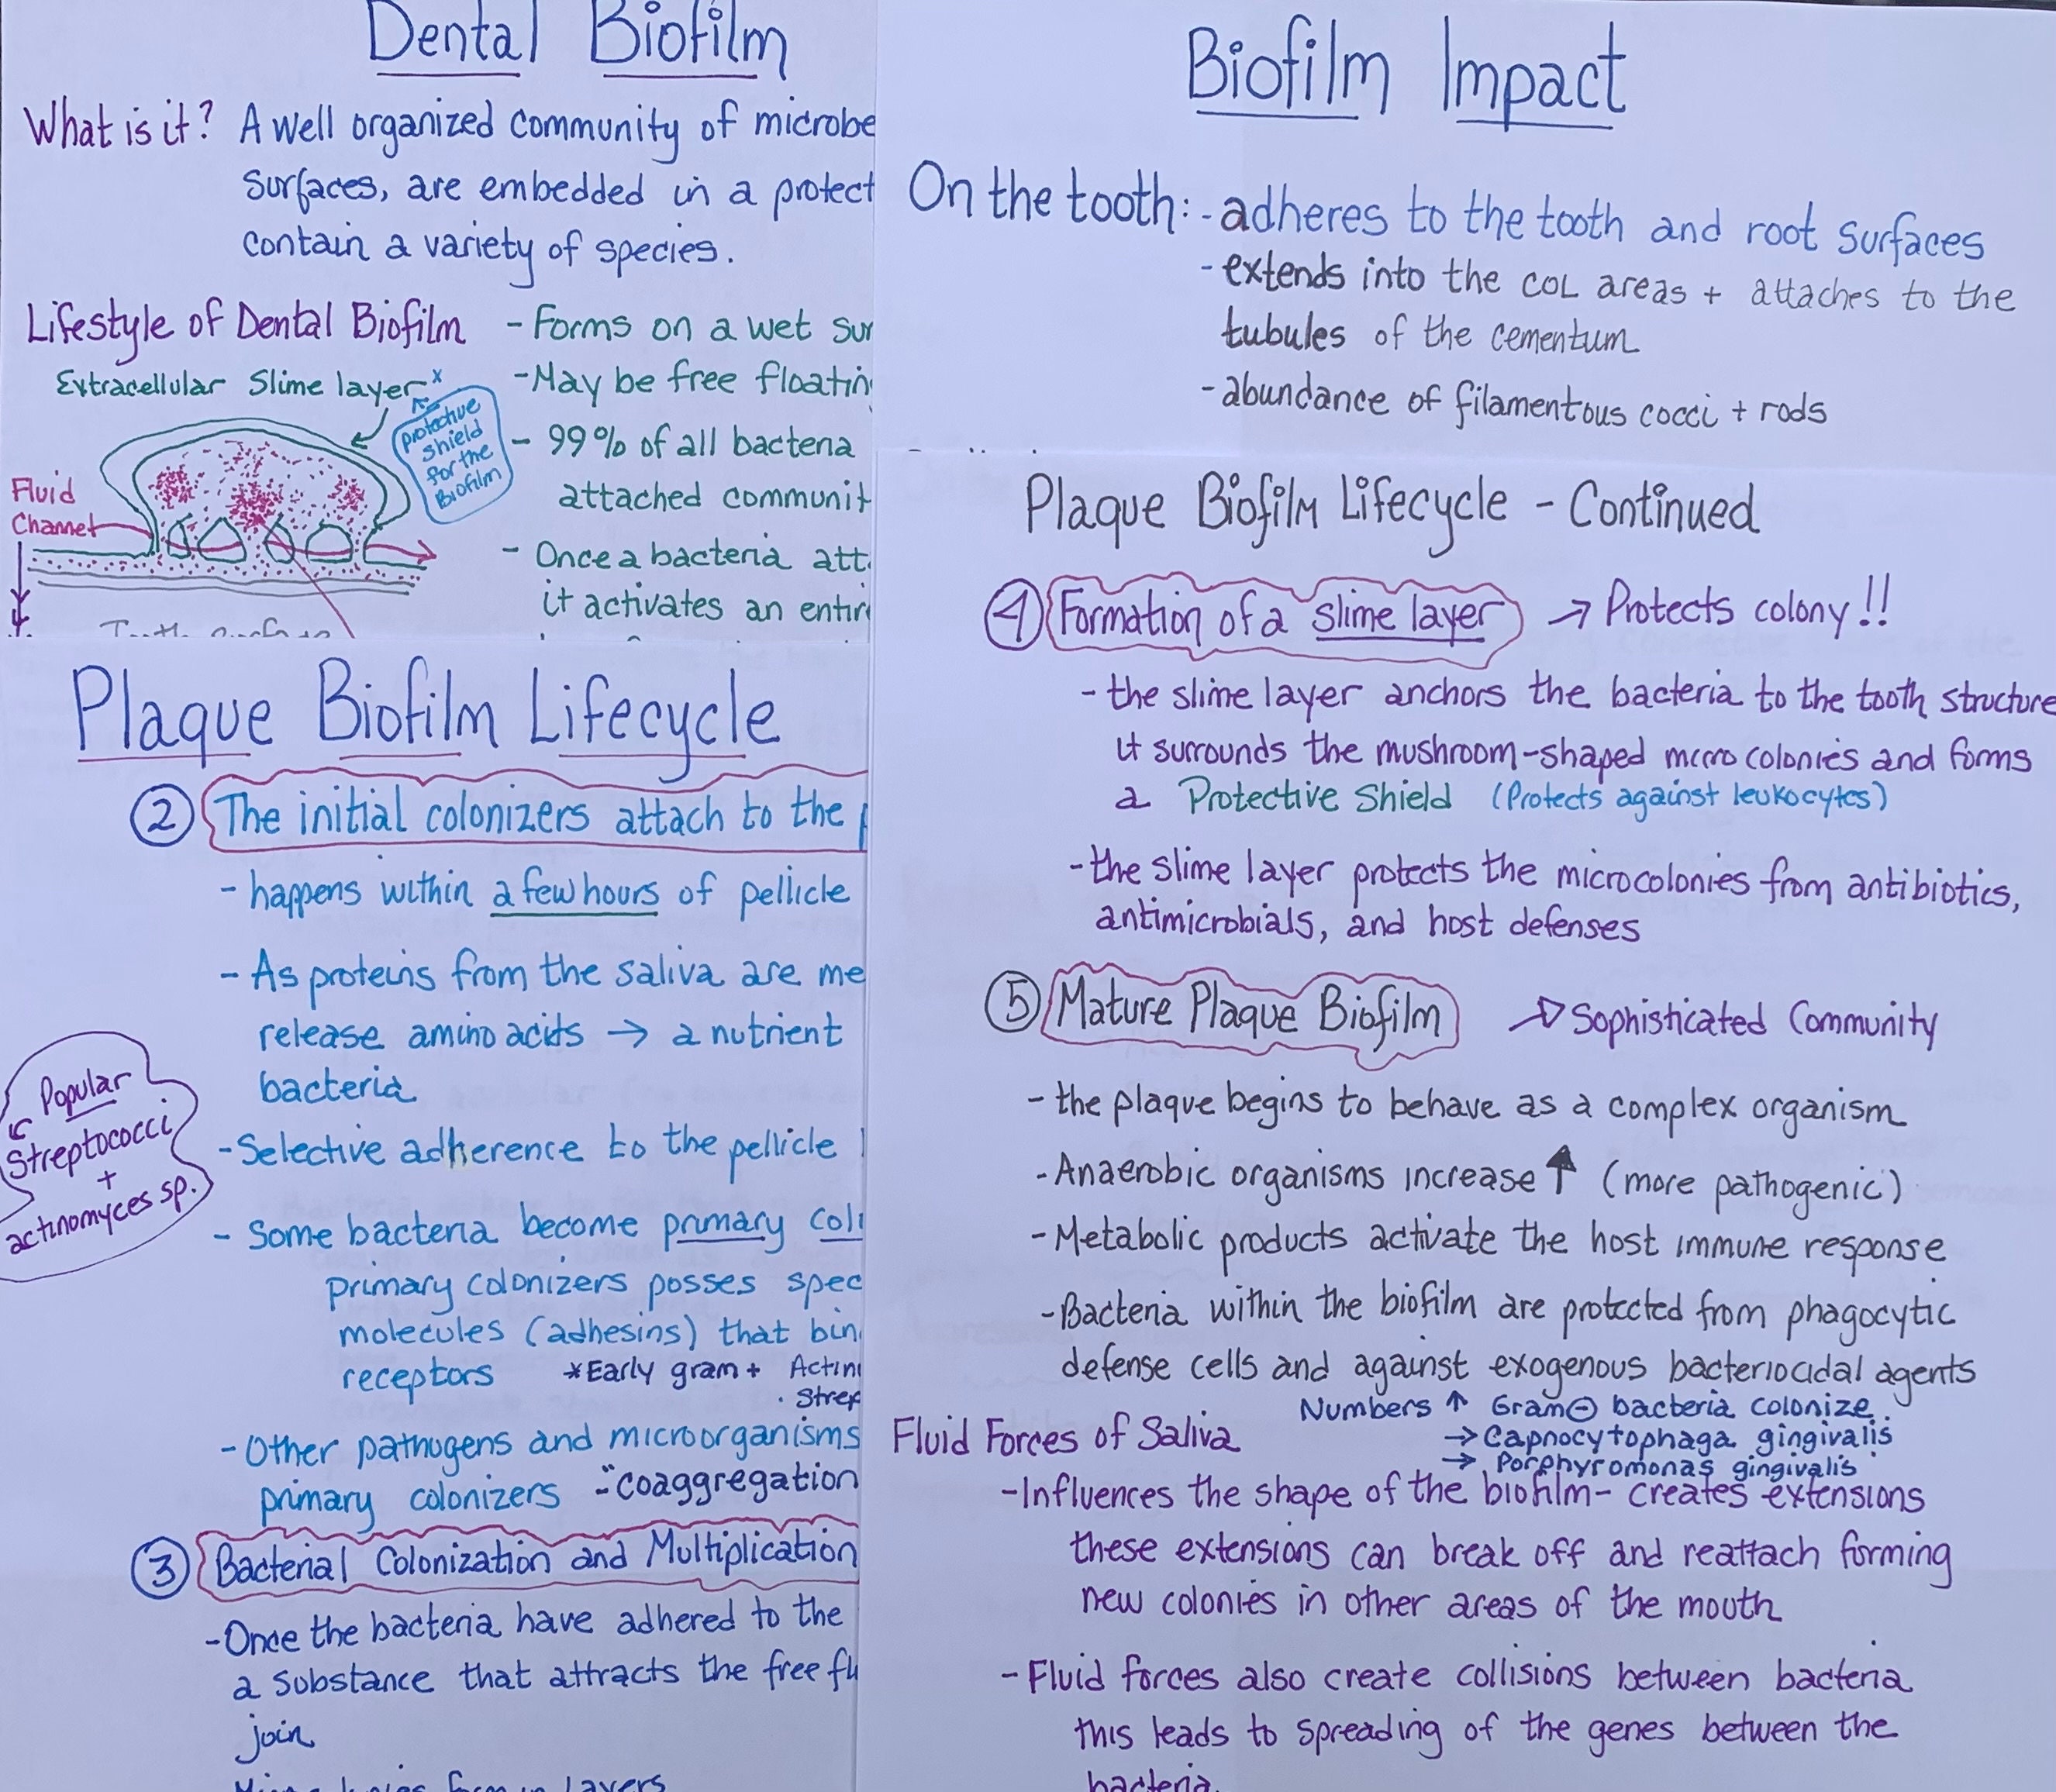 Dental Biofilm
What is it? A well organized community of microbe
surfaces, are embedded in a protect
contain a variety of species.
Lifestyle of Dental Biofilm - Forms on a wet sur
Extracellular Slime layer x
protective
shield
for the
Biofilm
Fluid
Channel
- May be free floatin
- 99% of all bacteria
attached communit
- Once a bacteria att
it activates an entir
Tooth surface
Plaque Biofilm Lifecycle
② The initial colonizers attach to the
- happens within a few hours of pellicle
- As proteins from the saliva are me
release amino acids → a nutrient
bacteria
- Selective adherence to the pellicle
Popular
Streptococci
+
actinomyces sp.
- Some bacteria become primary coli
primary colonizers posses spec
molecules (adhesins) that bin
receptors *Early gram + Actin
. Strep
- Other pathogens and microorganisms
primary colonizers - "coaggregation
③ Bacterial Colonization and Multiplication
- Once the bacteria have adhered to the
a substance that attracts the free fl
join
layers
Biofilm Impact
On the tooth: - adheres to the tooth and root surfaces
- extends into the COL areas + attaches to the
tubules of the cementum
- abundance of filamentous cocci + rods
Plaque Biofilm Lifecycle - Continued
④ Formation of a slime layer → Protects colony!!
- the slime layer anchors the bacteria to the tooth structure
it surrounds the mushroom-shaped micro colonies and forms
a Protective Shield (Protects against leukocytes)
- the slime layer protects the microcolonies from antibiotics,
antimicrobials, and host defenses
⑤ Mature Plaque Biofilm → Sophisticated Community
- the plaque begins to behave as a complex organism
- Anaerobic organisms increase ↑ (more pathogenic)
- Metabolic products activate the host immune response
- Bacteria within the biofilm are protected from phagocytic
defense cells and against exogenous bacteriocidal agents
Numbers ↑ Gram ⊖ bacteria colonize.
→ Capnocytophaga gingivalis
→ Porphyromonas gingivalis
Fluid Forces of Saliva
- Influences the shape of the biofilm - creates extensions
these extensions can break off and reattach forming
new colonies in other areas of the mouth
- Fluid forces also create collisions between bacteria
this leads to spreading of the genes between the
bacteria.